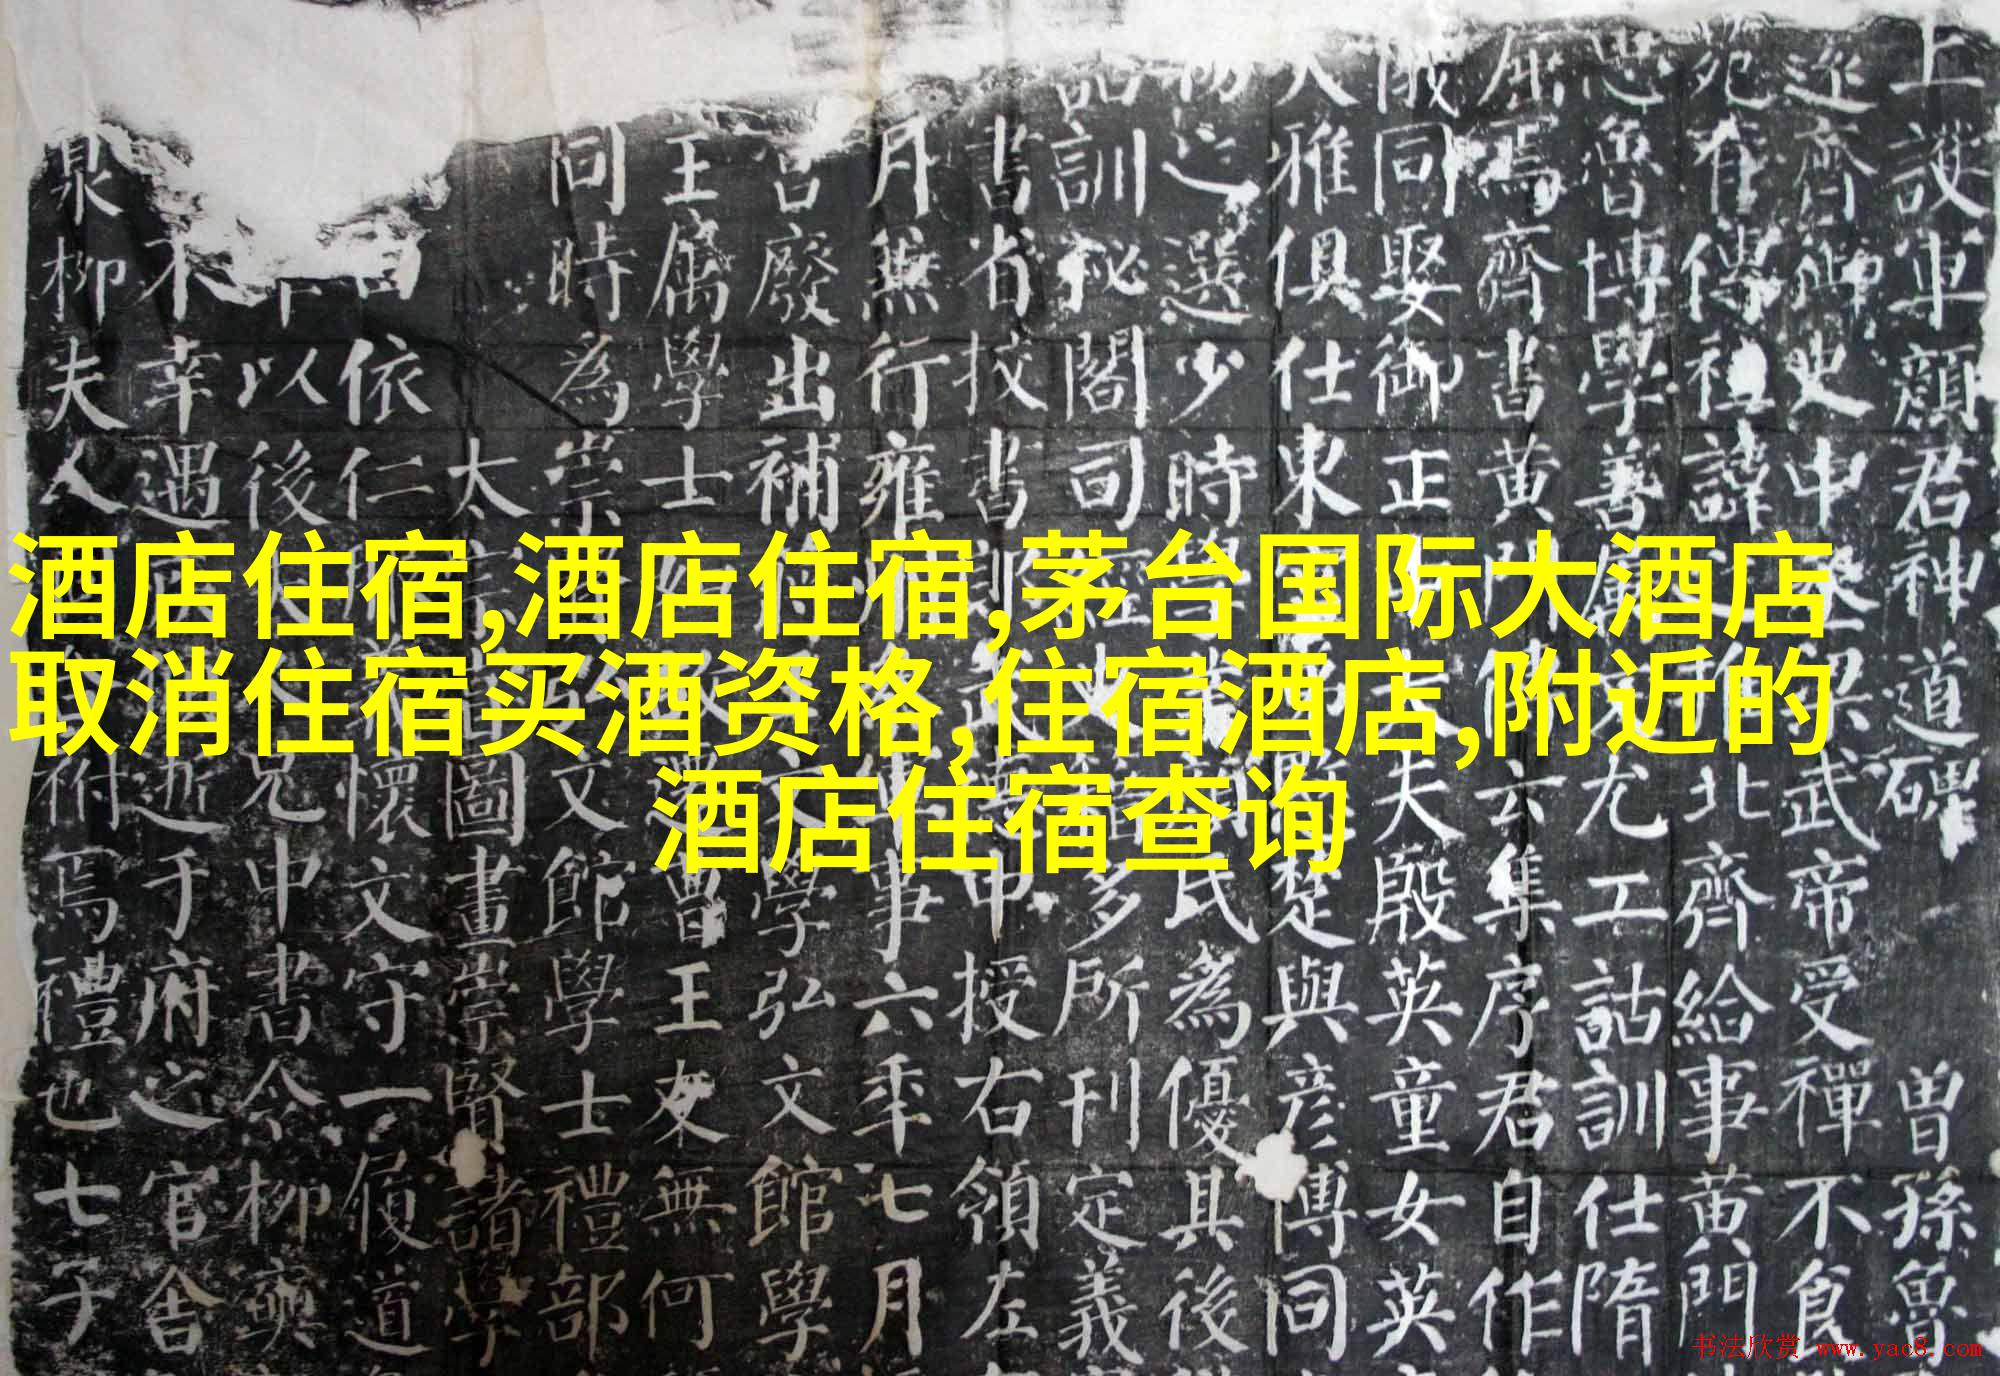 酒店住宿,酒店住宿,茅台国际大酒店
取消住宿买酒资格,住宿酒店,附近的
酒店住宿查询
上護軍顏君神道碑 曾孫魯
逐齊御史中丞梁武帝受禪不食
宛有傳祖諱北齊給事黄門
忠魯博學善屬尤工詁訓仕隋
屈焉齊書黄門云集序君自作
儀同娶御正大夫殷英童女英
大雅俱仕東宮楚與彦博同
初之選少時學氏為優其後
詁訓秘閣司經多所刊定義
書省挍書郎中授右領左
月無行雍州事六年七月
宮廢出補學弘文館學
王属學士曹王友無何
同時為崇文館學士禮部
太圖畫崇賢諸學
依仁懷文守一履道
以後兄中書令柳奭
不幸遇逝于府之官舍
泉柳夫人祔焉禮也七子
书法欣赏 www.yac8.com